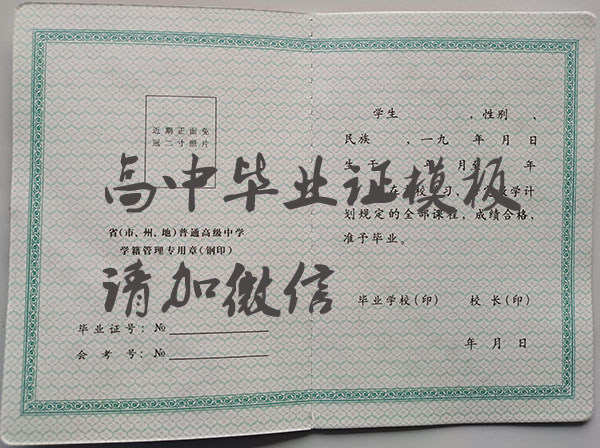 近期正面免
冠二寸照片
省(市、州、地)普通高级中学
学籍管理专用章(钢印)
毕业证号：№
会考号：№
学生 ，性别 ，
民族 ，一九 年 月 日
生于 年 月 年
在 校 习， 学计
划规定的全部课程，成绩合格，
准予毕业。
毕业学校(印) 校长(印)
年 月 日
高中毕业证模板
请加微信